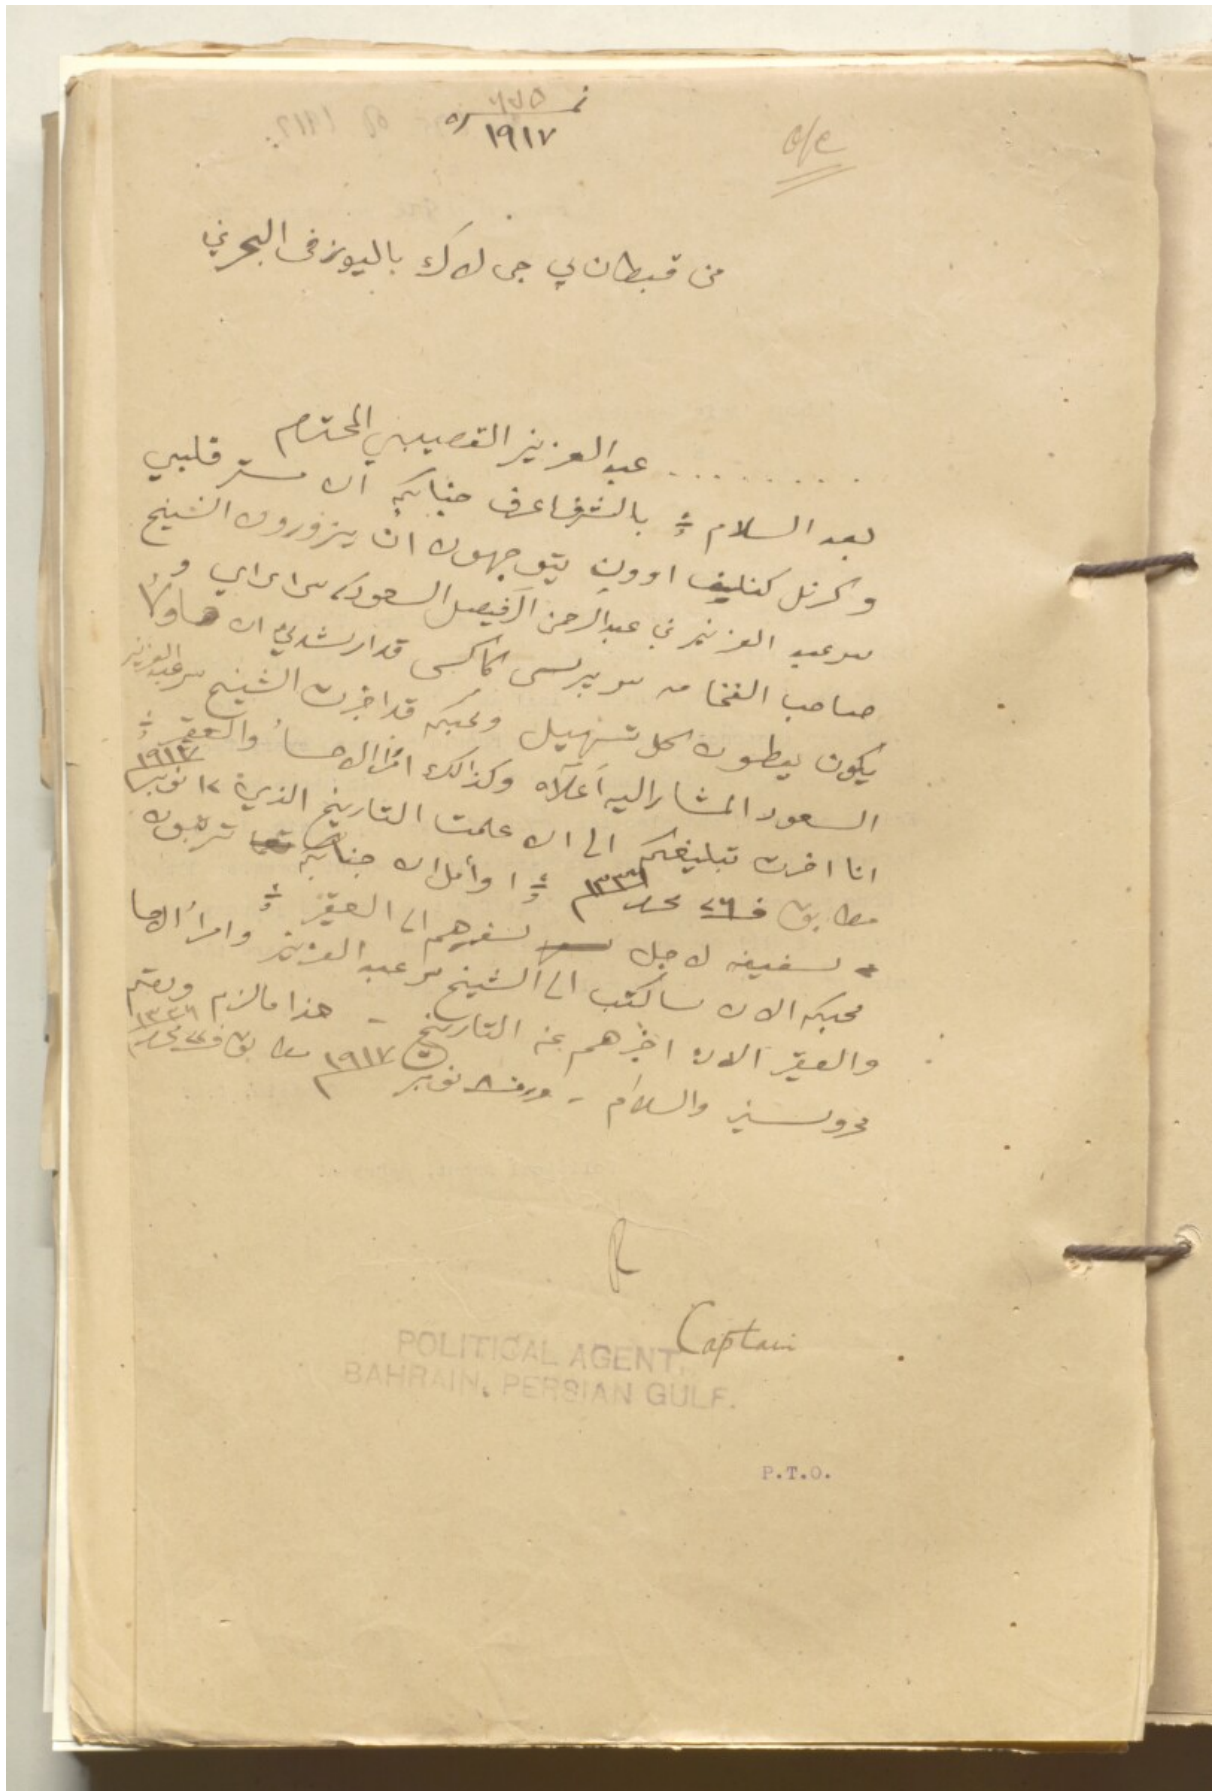 نمره ٦٧٥
١٩١٧
o/c
من قبطان بي جي لاك باليوز في البحرين
......... عبدالعزيز القصيبي المحترم
بعد السلام بالشرف اعرف جنابكم ان مستر فلبي
وكرنل كنليف اوون يتوجهون ان يزورون الشيخ
سر عبد العزيز بن عبدالرحمن الفيصل السعود كى سى اى اي و
صاحب الفخامه سر پرسى كاكس قد ارشدني ان هاولاء
يكون يعطون كل تسهيل ومحبكم قد اخبرت الشيخ سر عبدالعزيز
السعود المشار اليه اعلاه وكذالك امراء الاحساء والعقير
انا اخرت تبليغكم الى ان علمت التاريخ الذي ١٢ نوبر ١٩١٧
مطابق في ٢٦ محرم ١٣٣٦ وأمل ان جنابكم ترتبون
سفينه لاجل سفرهم الى العقير
محبكم الان ساكتب الى الشيخ سر عبد العزيز وامراء الاحسا
والعقير الان اخبرهم عن التاريخ - هذا ما لزم ودمتم
محروسين والسلام - ٨ نوبر ١٩١٧ مطابق محرم ١٣٣٦
Captain
POLITICAL AGENT,
BAHRAIN, PERSIAN GULF.
P.T.O.